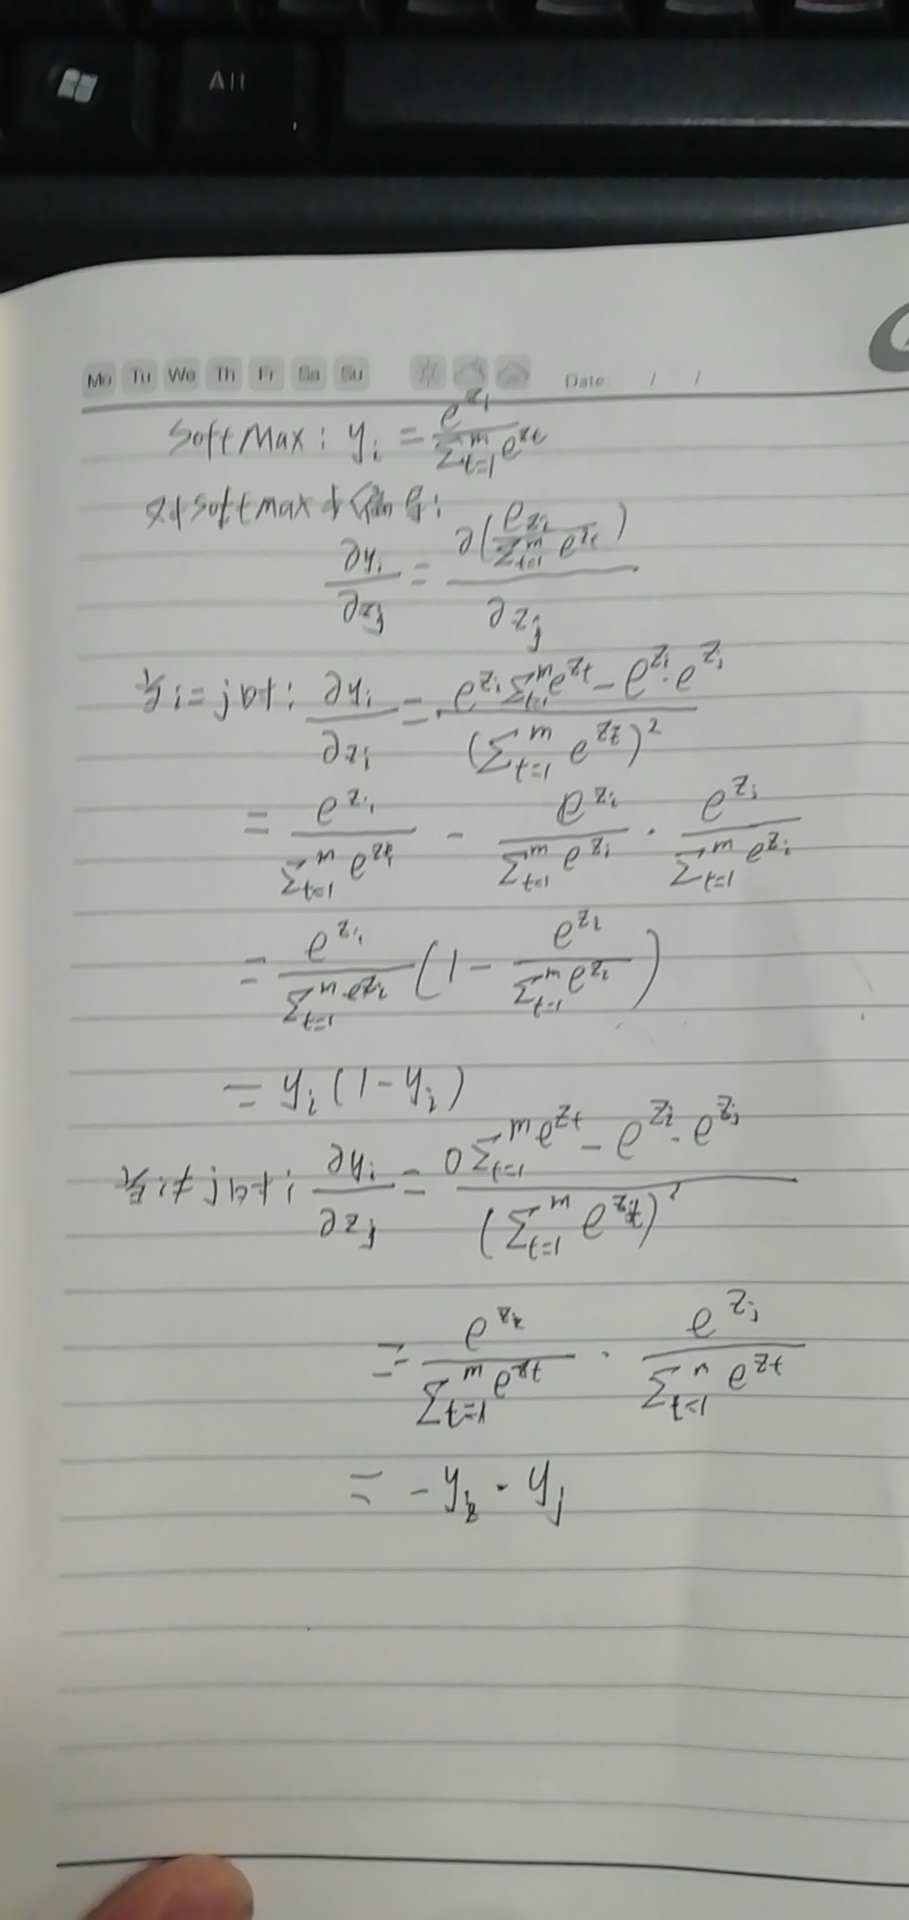 All
Mo Tu We Th Fr Sa Su Date: / /
softMax: y_i = \frac{e^{z_i}}{\sum_{t=1}^{m} e^{z_t}}
对softmax求偏导:
\frac{∂y_i}{∂z_j} = \frac{∂(\frac{e^{z_i}}{\sum_{t=1}^{m} e^{z_t}})}{∂z_j}
当i=j时: \frac{∂y_i}{∂z_i} = \frac{e^{z_i} \sum_{t=1}^{m} e^{z_t} - e^{z_i} \cdot e^{z_i}}{(\sum_{t=1}^{m} e^{z_t})^2}
= \frac{e^{z_i}}{\sum_{t=1}^{m} e^{z_i}} - \frac{e^{z_i}}{\sum_{t=1}^{m} e^{z_i}} \cdot \frac{e^{z_i}}{\sum_{t=1}^{m} e^{z_i}}
= \frac{e^{z_i}}{\sum_{t=1}^{m} e^{z_i}} (1 - \frac{e^{z_i}}{\sum_{t=1}^{m} e^{z_i}})
= y_i (1 - y_i)
当i≠j时: \frac{∂y_i}{∂z_j} = \frac{0 \sum_{t=1}^{m} e^{z_t} - e^{z_i} \cdot e^{z_j}}{(\sum_{t=1}^{m} e^{z_t})^2}
= \frac{e^{z_i}}{\sum_{t=1}^{m} e^{z_t}} \cdot \frac{e^{z_j}}{\sum_{t=1}^{m} e^{z_t}}
= -y_i \cdot y_j